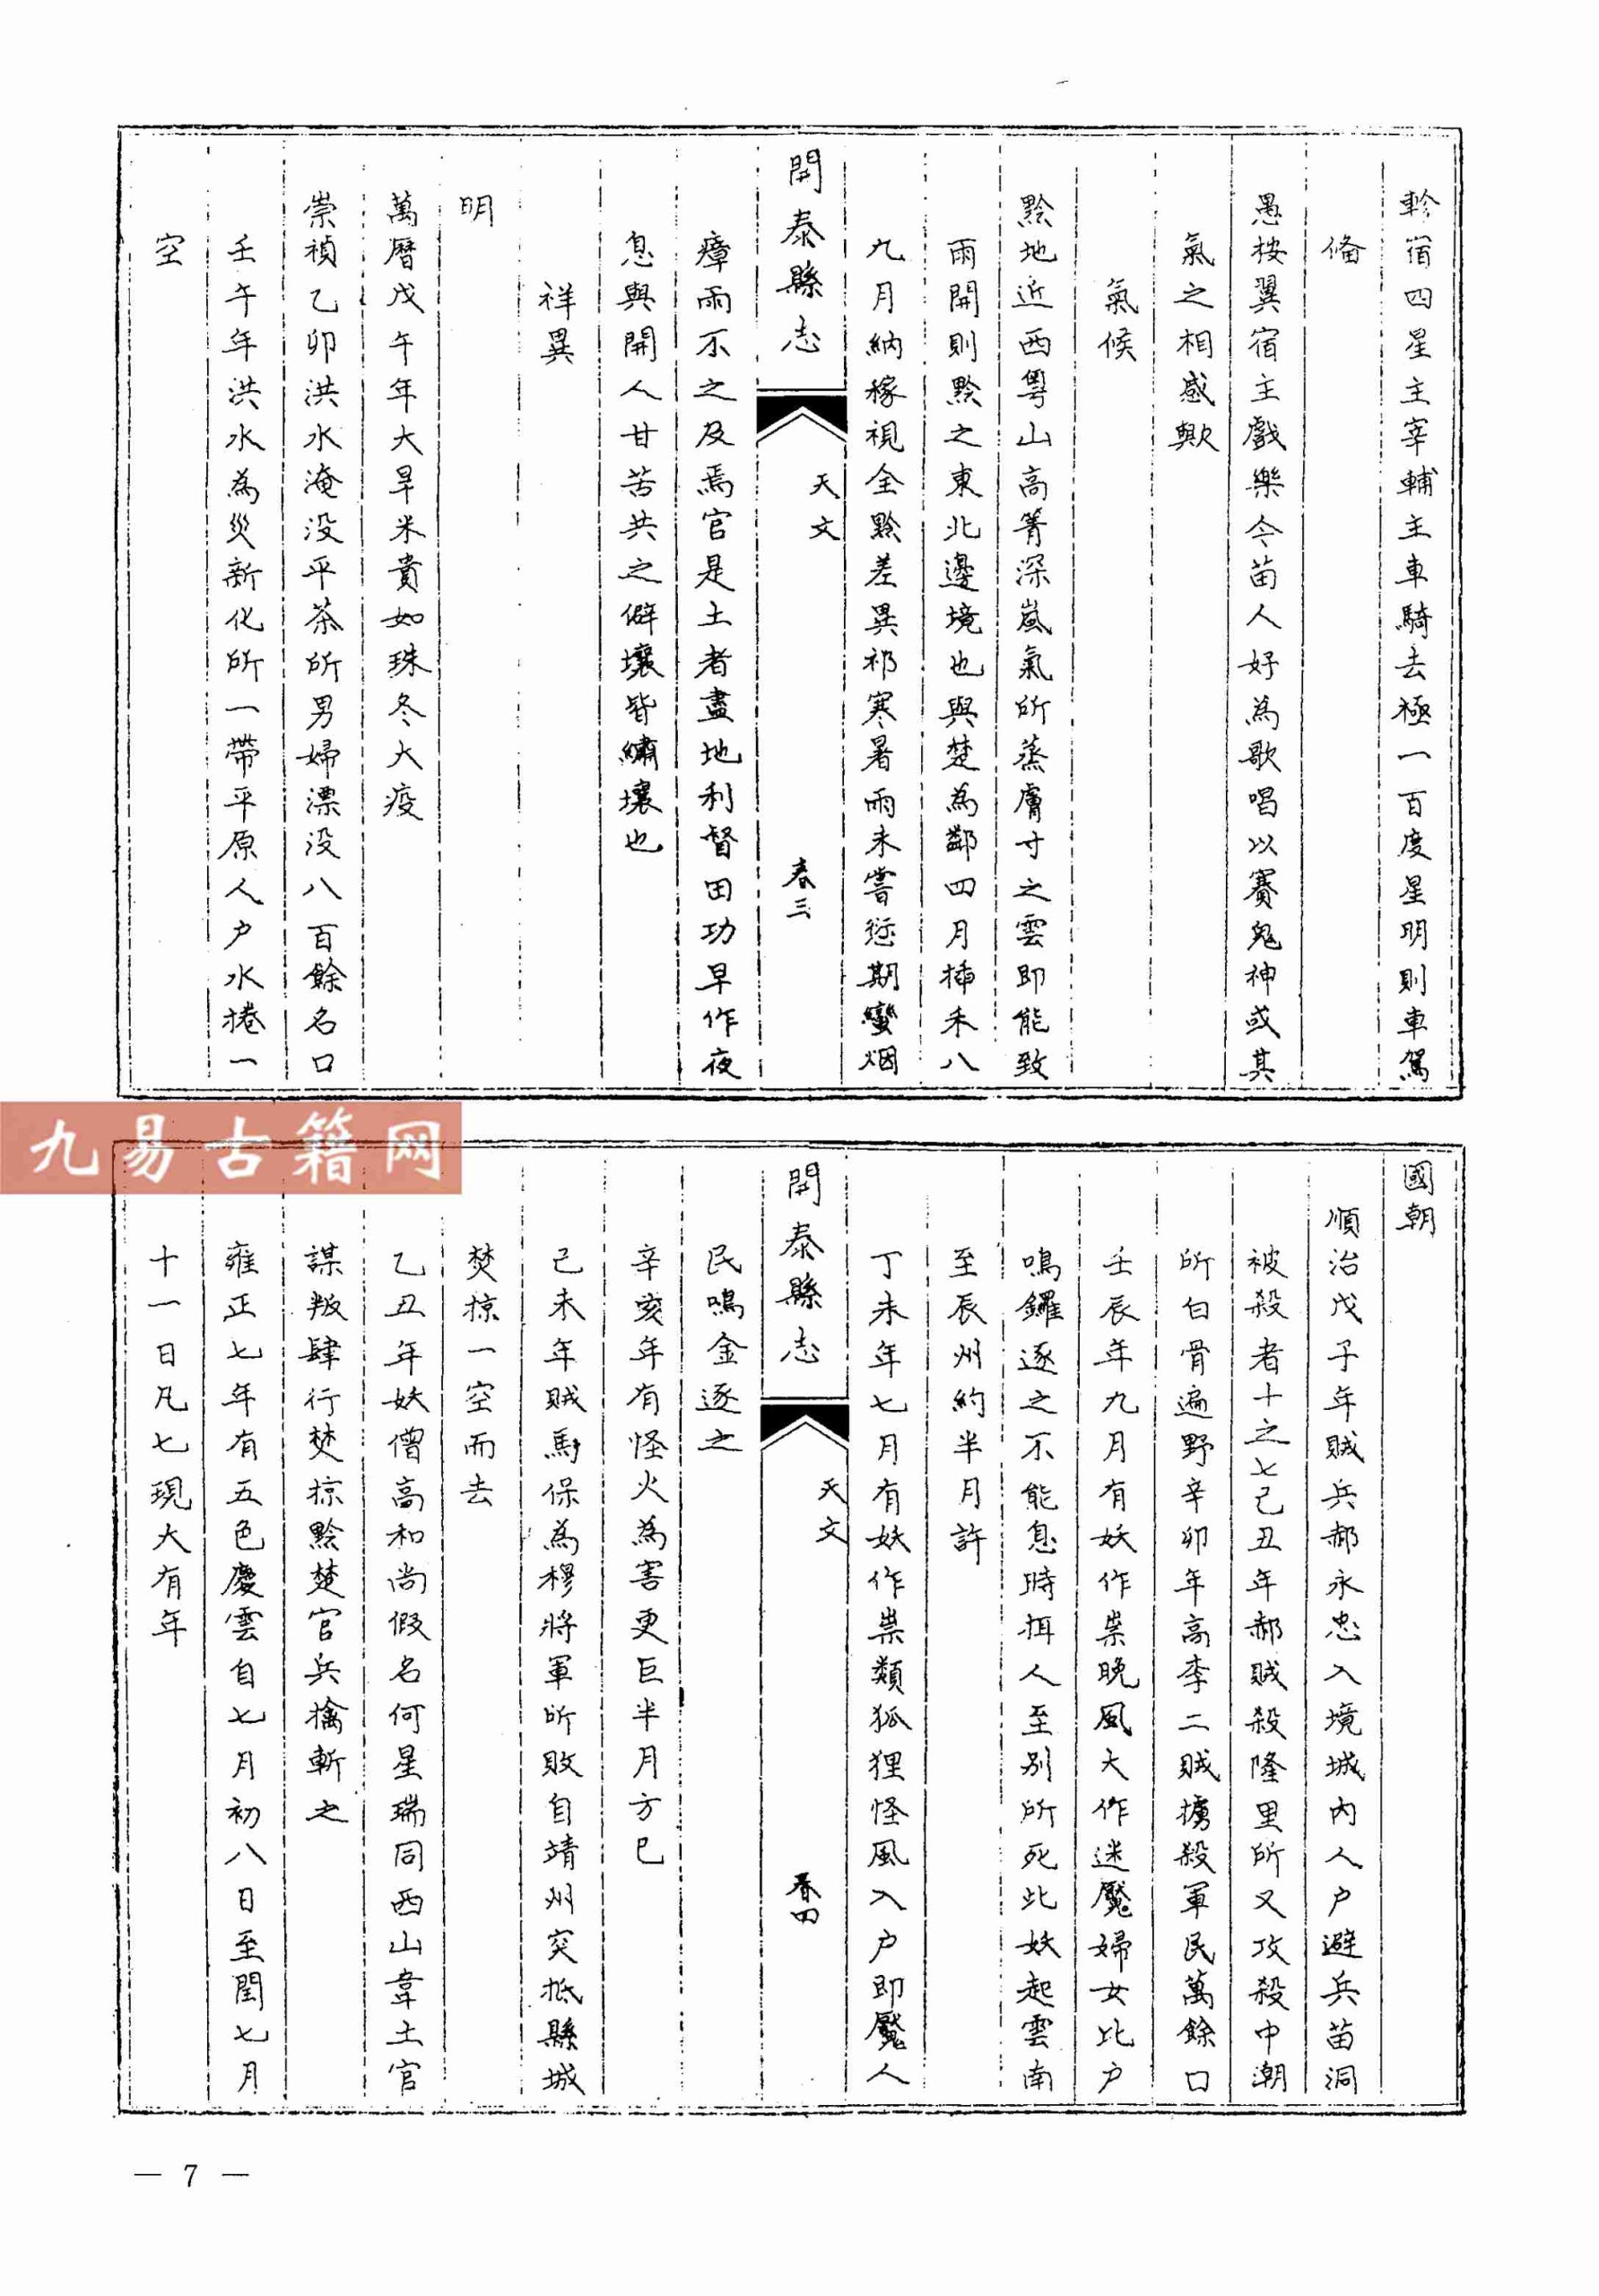 軫宿四星主宰輔主車騎去極一百度星明則車駕
俻
愚桉翼宿主戲樂今苗人好為歌唱以賽鬼神或其
氣之相感歟
氣候
黔地近西粤山高箐深嵐氣所蒸膚寸之雲即能致
雨開則黔之東北邊境也與楚為鄰四月揷禾八
九月納稼視全黔差異祁寒暑雨未嘗愆期蠻烟
開泰縣志
天文
春三
瘴雨不之及焉官是土者盡地利督田功早作夜
息與開人甘苦共之僻壤皆繡壤也
祥異
明
萬曆戊午年大旱米貴如珠冬大疫
崇禎乙卯洪水淹没平茶所男婦漂没八百餘名口
壬午年洪水為災新化所一帶平原人户水捲一
空
九易古籍网
國朝
順治戊子年賊兵郝永忠入境城内人户避兵苗洞
被殺者十之七己丑年郝賊殺隆里所又攻殺中潮
所白骨遍野辛卯年高李二賊擄殺軍民萬餘口
壬辰年九月有妖作祟晚風大作迷魘婦女比户
鳴鑼逐之不能息時抯人至别所死此妖起雲南
至辰州約半月許
丁未年七月有妖作祟類狐狸怪風入户即魘人
開泰縣志
天文
春四
民鳴金逐之
辛亥年有怪火為害更巨半月方已
己未年賊馬保為穆將軍所敗自靖州突抵縣城
焚掠一空而去
乙丑年妖僧高和尚假名何星瑞同西山韋土官
謀叛肆行焚掠黔楚官兵擒斬之
雍正七年有五色慶雲自七月初八日至閏七月
十一日凡七現大有年
— 7 —